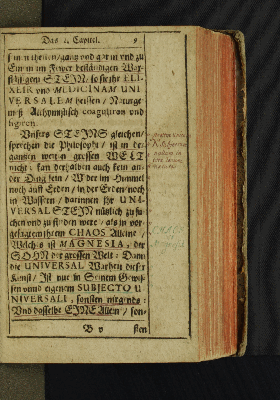 Das 1. Capitel. 9
sin in ihrem / ganz vnd gar in vnd zu
Einem im Fewer beständigen Wax-
flüssigem STEIN, so sie ihr ELI-
XEIR vnd MEDICINAM UNI-
VERSALEM heissen / Naturge-
meß Alchymistisch coaguliren vnd
figiren.
Vnsers STEINS gleichen /
sprechen die Philosophi / ist in der
gantzen weiten grossen WELT
nicht: kan derhalben auch kein an-
der Ding sein / Weder im Himmel
noch auff Erden / in der Erden / noch
in Wassern / darinnen Ihr UNI-
VERSAL STEIN nützlich zu su-
chen vnd zu finden were / als in vor-
gesagtem ihrem CHAOS Alleine /
Welchs ist MAGNESIA, der
SOHN der grossen Welt: Dann
die UNIVERSAL Warheit dieser
Kunst / Ist nur in Seinem Gewis-
sen vnnd eigenem SUBJECTO U-
NIVERSALI, sonsten nirgends:
Vnd dasselbe EINE Allein / son-
B v sten